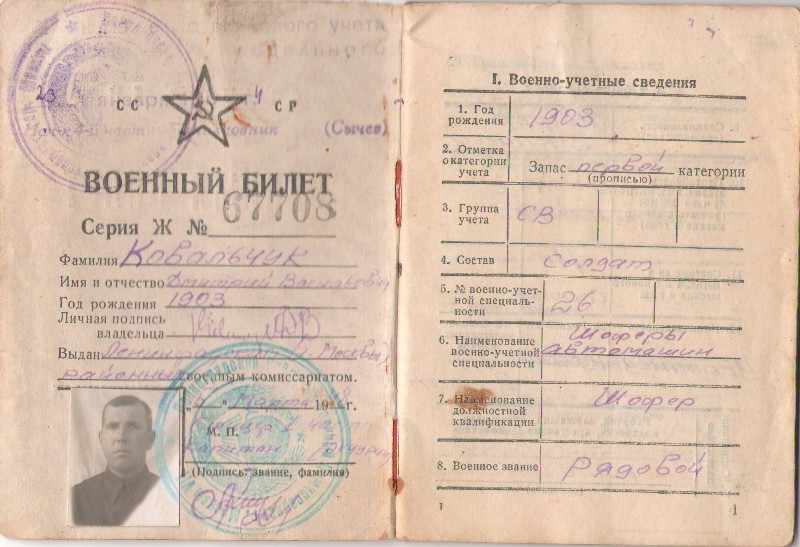 с учета
отдельного
23
4
СС СР
(Сычев)
ВОЕННЫЙ БИЛЕТ
Серия Ж № 67708
Фамилия Ковальчук
Имя и отчество Дмитрий Васильевич
Год рождения 1903
Личная подпись
владельца
Выдан Ленинградским г. Москвы
районным военным комиссариатом.
Марта 19 г.
М. П.
капитан
(Подпись, звание, фамилия)
I. Военно-учетные сведения
1. Год
рождения 1903
2. Отметка
о категории
учета
Запас первой категории
(прописью)
3. Группа
учета СВ
4. Состав Солдат
5. № военно-учет-
ной специаль-
ности 26
6. Наименование
военно-учетной
специальности
Шоферы
автомашин
7. Наименование
должностной
квалификации
Шофер
8. Военное звание Рядовой
1
1